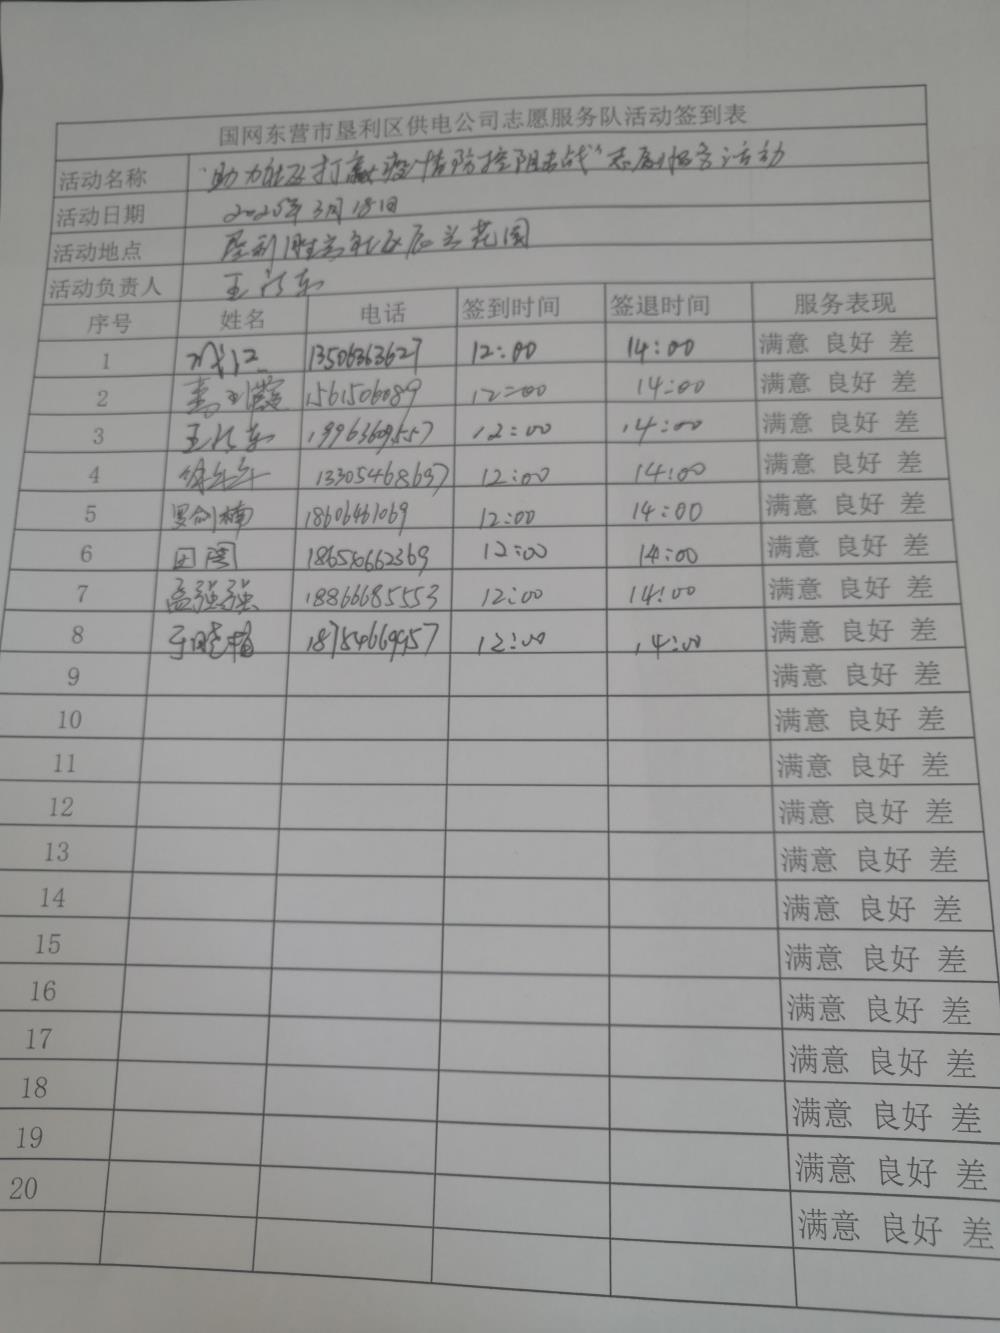 国网东营市垦利区供电公司志愿服务队活动签到表
活动名称 "助力社区打赢疫情防控阻击战"志愿服务活动
活动日期 2020年3月18日
活动地点 垦利胜兴社区辰兰花园
活动负责人 王
序号 姓名 电话 签到时间 签退时间 服务表现
1 13506363627 12:00 14:00 满意 良好 差
2 1561506089 12:00 14:00 满意 良好 差
3 王 19963609557 12:00 14:00 满意 良好 差
4 13305468637 12:00 14:00 满意 良好 差
5 罗剑楠 18606461069 12:00 14:00 满意 良好 差
6 18650662369 12:00 14:00 满意 良好 差
7 孟强强 18866685553 12:00 14:00 满意 良好 差
8 于晓楠 18754669957 12:00 14:00 满意 良好 差
9 满意 良好 差
10 满意 良好 差
11 满意 良好 差
12 满意 良好 差
13 满意 良好 差
14 满意 良好 差
15 满意 良好 差
16 满意 良好 差
17 满意 良好 差
18 满意 良好 差
19 满意 良好 差
20 满意 良好 差